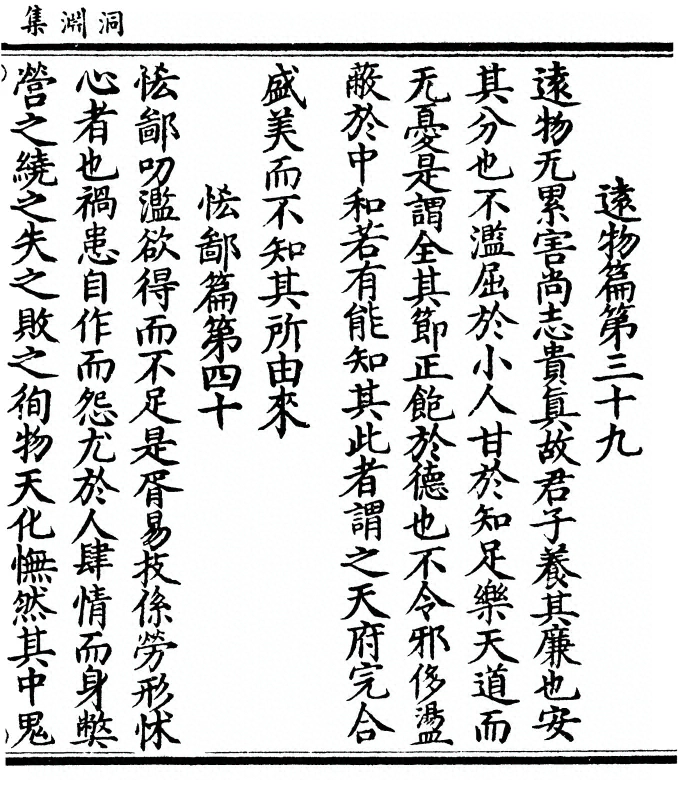 洞淵集
遠物篇第三十九
遠物无累害尚志貴真故君子養其廉也安
其分也不濫屈於小人甘於知足樂天道而
无憂是謂全其節正飽於德也不令邪侈濫
蔽於中和若有能知其此者謂之天府完合
盛美而不知其所由來
恡鄙篇第四十
恡鄙叨濫欲得而不足是胥易技係勞形怵
心者也禍患自作而怨尤於人肆情而身弊
營之繞之失之敗之徇物天化憮然其中鬼